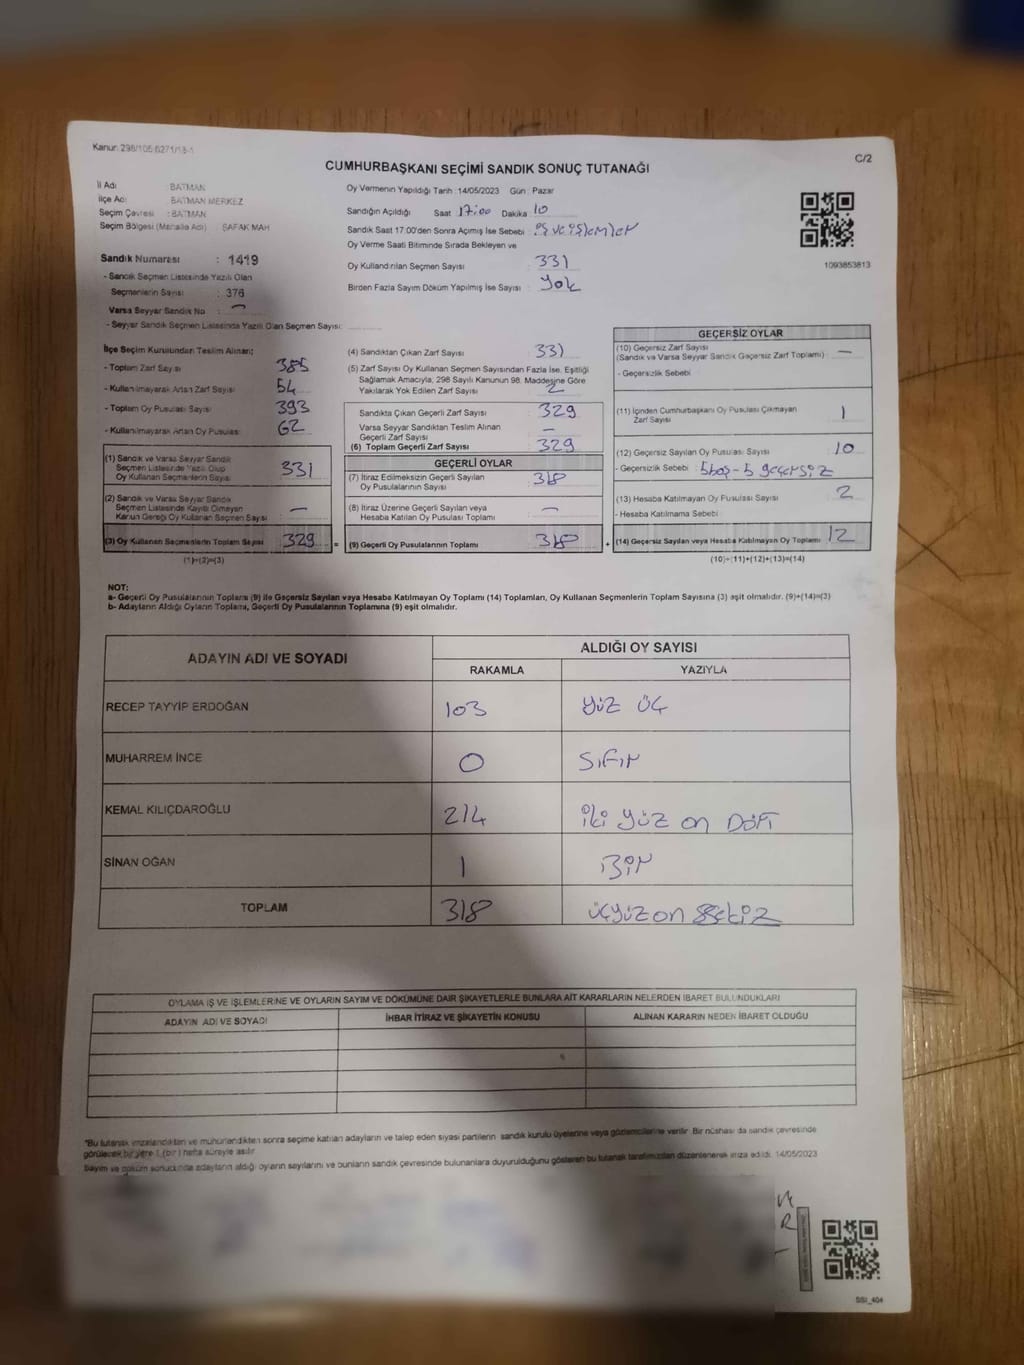 Kanun: 298/105,6271/13-1
C/2
CUMHURBAŞKANI SEÇİMİ SANDIK SONUÇ TUTANAĞI
İl Adı : BATMAN
İlçe Adı : BATMAN MERKEZ
Seçim Çevresi : BATMAN
Seçim Bölgesi (Mahalle Adı) : ŞAFAK MAH
Sandık Numarası : 1419
- Sandık Seçmen Listesinde Yazılı Olan
Seçmenlerin Sayısı : 376
Varsa Seyyar Sandık No : -
- Seyyar Sandık Seçmen Listesinde Yazılı Olan Seçmen Sayısı:
Oy Vermenin Yapıldığı Tarih : 14/05/2023 Gün : Pazar
Sandığın Açıldığı Saat 17:00 Dakika 10
Sandık Saat 17.00'den Sonra Açılmış İse Sebebi : iş ve işlemler
Oy Verme Saati Bitiminde Sırada Bekleyen ve
Oy Kullandırılan Seçmen Sayısı : 331
Birden Fazla Sayım Döküm Yapılmış İse Sayısı : yok
1093853813
İlçe Seçim Kurulundan Teslim Alınan;
- Toplam Zarf Sayısı : 385
- Kullanılmayarak Artan Zarf Sayısı : 54
- Toplam Oy Pusulası Sayısı : 393
- Kullanılmayarak Artan Oy Pusulası : 62
(1) Sandık ve Varsa Seyyar Sandık
Seçmen Listesinde Yazılı Olup
Oy Kullanan Seçmenlerin Sayısı : 331
(2) Sandık ve Varsa Seyyar Sandık
Seçmen Listesinde Kayıtlı Olmayan
Kanun Gereği Oy Kullanan Seçmen Sayısı : -
(3) Oy Kullanan Seçmenlerin Toplam Sayısı : 329
(1)+(2)=(3)
(4) Sandıktan Çıkan Zarf Sayısı : 331
(5) Zarf Sayısı Oy Kullanan Seçmen Sayısından Fazla İse, Eşitliği
Sağlamak Amacıyla, 298 Sayılı Kanunun 98. Maddesine Göre
Yakılarak Yok Edilen Zarf Sayısı : 2
Sandıkta Çıkan Geçerli Zarf Sayısı : 329
Varsa Seyyar Sandıktan Teslim Alınan
Geçerli Zarf Sayısı : -
(6) Toplam Geçerli Zarf Sayısı : 329
GEÇERLİ OYLAR
(7) İtiraz Edilmeksizin Geçerli Sayılan
Oy Pusulalarının Sayısı : 318
(8) İtiraz Üzerine Geçerli Sayılan veya
Hesaba Katılan Oy Pusulası Toplamı : -
= (9) Geçerli Oy Pusulalarının Toplamı : 318
GEÇERSİZ OYLAR
(10) Geçersiz Zarf Sayısı
(Sandık ve Varsa Seyyar Sandık Geçersiz Zarf Toplamı) : -
- Geçersizlik Sebebi :
(11) İçinden Cumhurbaşkanı Oy Pusulası Çıkmayan
Zarf Sayısı : 1
(12) Geçersiz Sayılan Oy Pusulası Sayısı : 10
- Geçersizlik Sebebi : 5 boş - 5 geçersiz
(13) Hesaba Katılmayan Oy Pusulası Sayısı : 2
- Hesaba Katılmama Sebebi :
+ (14) Geçersiz Sayılan veya Hesaba Katılmayan Oy Toplamı : 12
(10)+(11)+(12)+(13)=(14)
NOT:
a- Geçerli Oy Pusulalarının Toplamı (9) ile Geçersiz Sayılan veya Hesaba Katılmayan Oy Toplamı (14) Toplamları, Oy Kullanan Seçmenlerin Toplam Sayısına (3) eşit olmalıdır. (9)+(14)=(3)
b- Adayların Aldığı Oyların Toplamı, Geçerli Oy Pusulalarının Toplamına (9) eşit olmalıdır.
ADAYIN ADI VE SOYADI
ALDIĞI OY SAYISI
RAKAMLA YAZIYLA
RECEP TAYYİP ERDOĞAN 103 yüz üç
MUHARREM İNCE 0 sıfır
KEMAL KILIÇDAROĞLU 214 iki yüz on Dört
SİNAN OĞAN 1 Bir
TOPLAM 318 üçyüz on sekiz
OYLAMA İŞ VE İŞLEMLERİNE VE OYLARIN SAYIM VE DÖKÜMÜNE DAİR ŞİKAYETLERLE BUNLARA AİT KARARLARIN NELERDEN İBARET BULUNDUKLARI
ADAYIN ADI VE SOYADI İHBAR İTİRAZ VE ŞİKAYETİN KONUSU ALINAN KARARIN NEDEN İBARET OLDUĞU
*Bu tutanak imzalandıktan ve mühürlendikten sonra seçime katılan adayların ve talep eden siyasi partilerin sandık kurulu üyelerine veya gözlemcilerine verilir. Bir nüshası da sandık çevresinde
görülecek bir yere 1 (bir) hafta süreyle asılır.
Sayım ve döküm sonucunda adayların aldığı oyların sayılarını ve bunların sandık çevresinde bulunanlara duyurulduğunu gösteren bu tutanak tarafımızdan düzenlenerek imza edildi. 14/05/2023
SSI_404